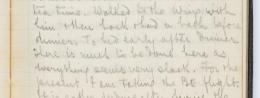 tea time. Walked to the wing with
him & then back & had a bath before
dinner. To bed early after dinner
There is much to be done here as
everything seems very slack. For the
present I am taking the "B" flight.